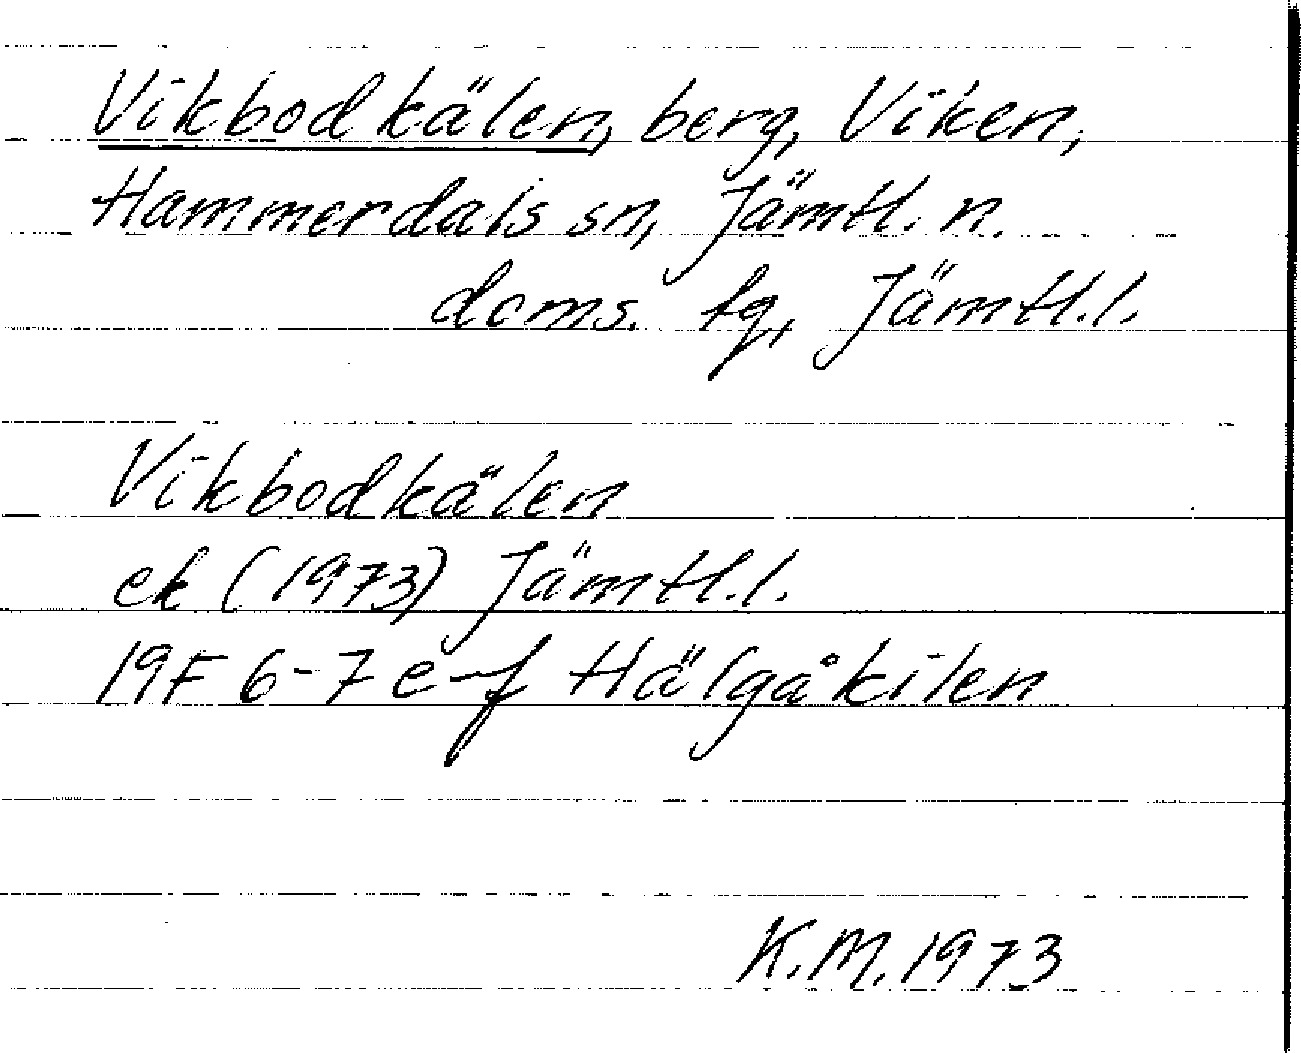 Vikbodkälen, berg, Viken,
Hammerdals sn, Jämtl. n.
doms. tg, Jämtl.l.
Vikbodkälen
ek (1973) Jämtl.l.
19F 6-7 e-f Hälgåkilen
K.M. 1973